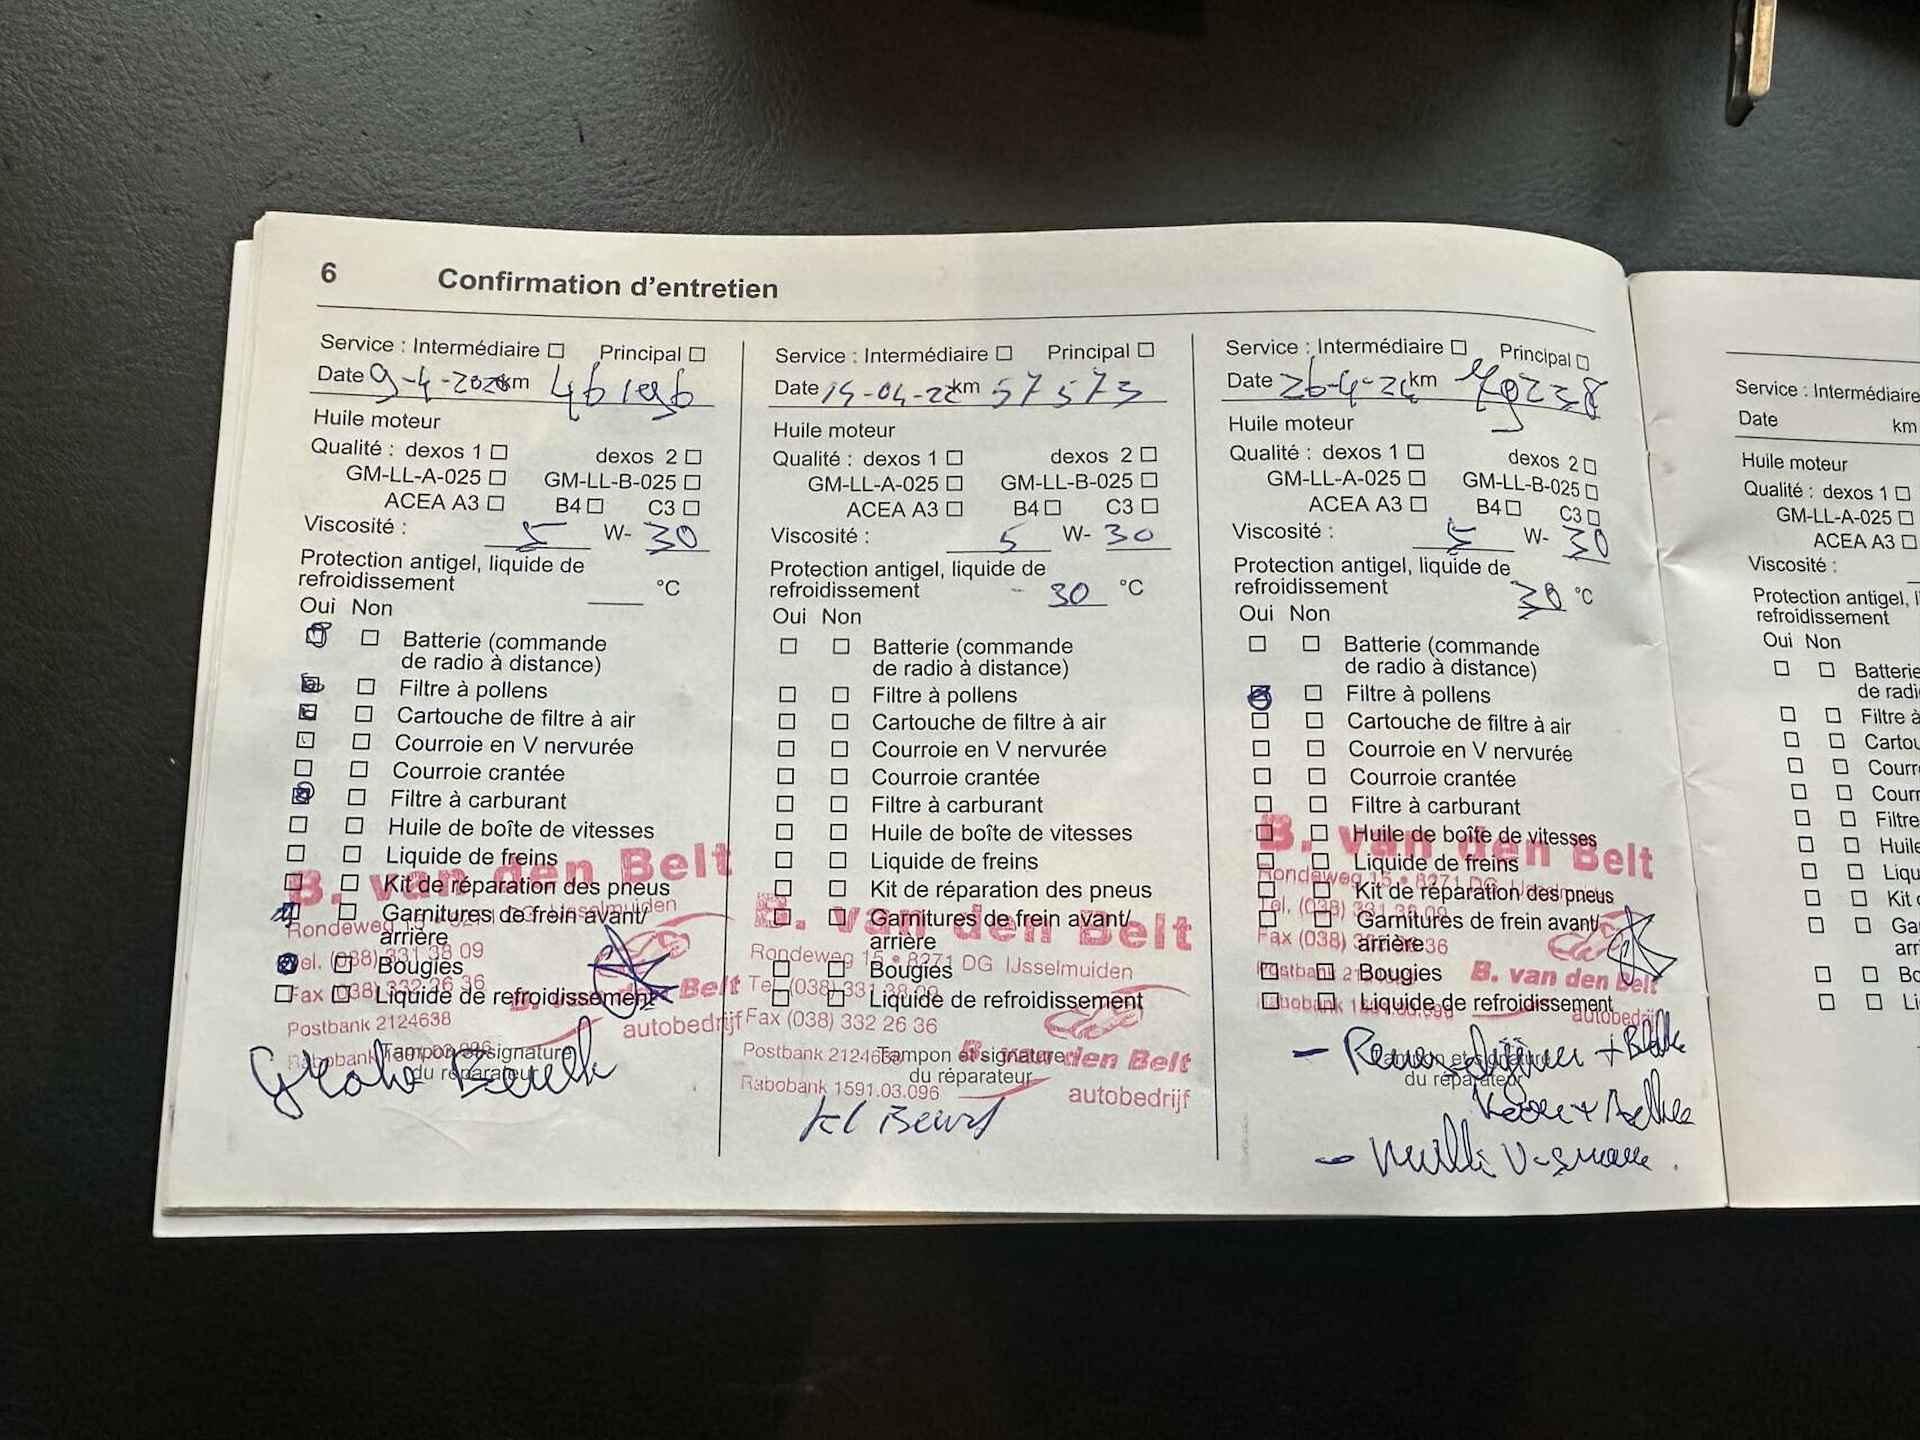 6 Confirmation d'entretien
Service : Intermédiaire □ Principal □
Date 9-4-2020 km 46196
Huile moteur
Qualité : dexos 1 □ dexos 2 □
GM-LL-A-025 □ GM-LL-B-025 □
ACEA A3 □ B4 □ C3 □
Viscosité : 5 W- 30
Protection antigel, liquide de
refroidissement °C
Oui Non
Batterie (commande
de radio à distance)
Filtre à pollens
Cartouche de filtre à air
Courroie en V nervurée
Courroie crantée
Filtre à carburant
Huile de boîte de vitesses
Liquide de freins
Kit de réparation des pneus
Garnitures de frein avant/
arrière
Bougies
Liquide de refroidissement
Tampon et signature
du réparateur
B. van den Belt
Rondeweg 15 • 8271 DG IJsselmuiden
Tel. (038) 331 38 09
Fax (038) 332 26 36
Postbank 2124638
Rabobank 1591.03.096
B. van den Belt
autobedrijf
Service : Intermédiaire □ Principal □
Date -04-22 km 57573
Huile moteur
Qualité : dexos 1 □ dexos 2 □
GM-LL-A-025 □ GM-LL-B-025 □
ACEA A3 □ B4 □ C3 □
Viscosité : 5 W- 30
Protection antigel, liquide de
refroidissement - 30 °C
Oui Non
Batterie (commande
de radio à distance)
Filtre à pollens
Cartouche de filtre à air
Courroie en V nervurée
Courroie crantée
Filtre à carburant
Huile de boîte de vitesses
Liquide de freins
Kit de réparation des pneus
Garnitures de frein avant/
arrière
Bougies
Liquide de refroidissement
Tampon et signature
du réparateur
B. van den Belt
Rondeweg 15 • 8271 DG IJsselmuiden
Tel. (038) 331 38 09
Fax (038) 332 26 36
Postbank 2124638
Rabobank 1591.03.096
B. van den Belt
autobedrijf
Kl Beurt
Service : Intermédiaire □ Principal □
Date 26-4-24 km 70238
Huile moteur
Qualité : dexos 1 □ dexos 2 □
GM-LL-A-025 □ GM-LL-B-025 □
ACEA A3 □ B4 □ C3 □
Viscosité : 5 W- 30
Protection antigel, liquide de
refroidissement 30 °C
Oui Non
Batterie (commande
de radio à distance)
Filtre à pollens
Cartouche de filtre à air
Courroie en V nervurée
Courroie crantée
Filtre à carburant
Huile de boîte de vitesses
Liquide de freins
Kit de réparation des pneus
Garnitures de frein avant/
arrière
Bougies
Liquide de refroidissement
Tampon et signature
du réparateur
B. van den Belt
Rondeweg 15 • 8271 DG IJsselmuiden
Tel. (038) 331 38 09
Fax (038) 332 26 36
Postbank 2124638
Rabobank 1591.03.096
B. van den Belt
autobedrijf
Service : Intermédiaire
Date km
Huile moteur
Qualité : dexos 1 □
GM-LL-A-025 □
ACEA A3 □
Viscosité :
Protection antigel, l
refroidissement
Oui Non
Batterie
de radi
Filtre à
Cartou
Courr
Courr
Filtre
Huile
Liqu
Kit
Ga
arr
Bo
Li